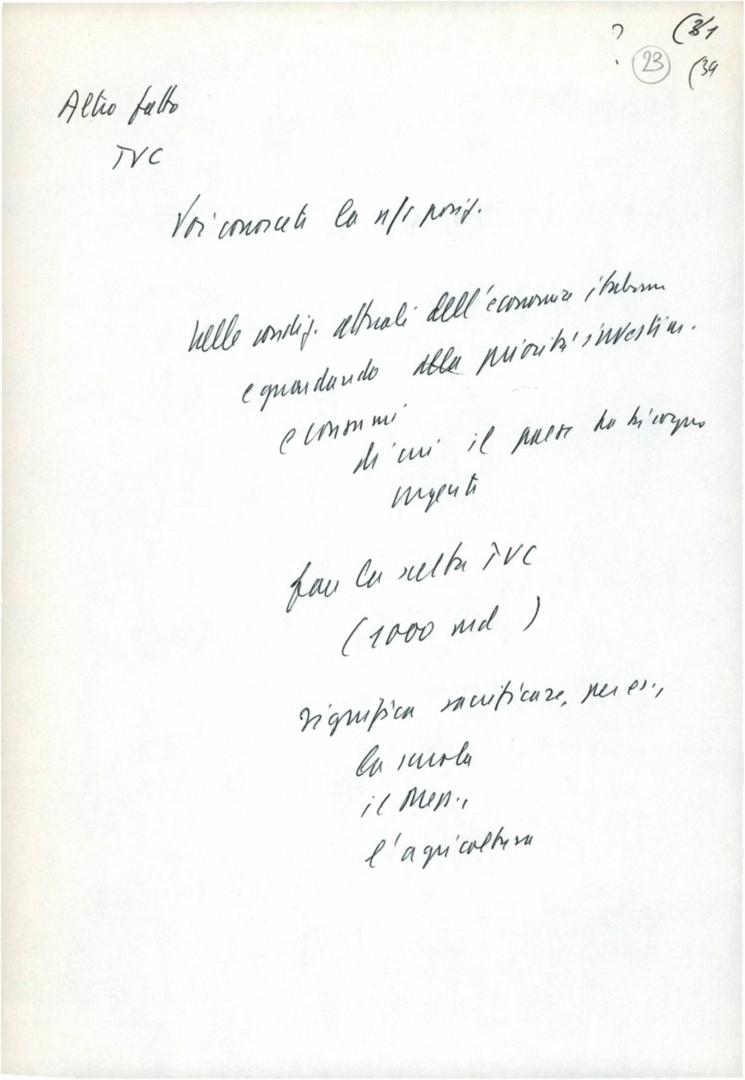 ? (31
23 (39
Altro fatto
TVC
Voi conoscete la n/s posiz.
nelle condiz. attuali dell'economia italiana
e guardando alla priorità investim.
e consumi
di cui il paese ha bisogno
urgente
fare la scelta TVC
(1000 md)
significa sacrificare, per es.,
la scuola
il Mezz.,
l'agricoltura